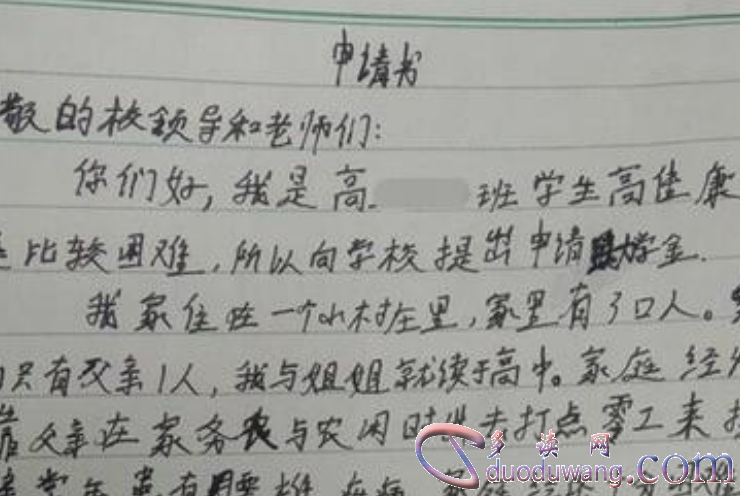 申请书
敬的校领导和老师们:
你们好,我是高 班学生高佳康
比较困难,所以向学校提出申请助学金.
我家住在一个小村庄里,家里有3口人。
只有父亲1人,我与姐姐就读于高中。家庭经
靠父亲在家务农与农闲时进去打点零工来
常年患有腰椎疾病
多读网
duoduwang.com